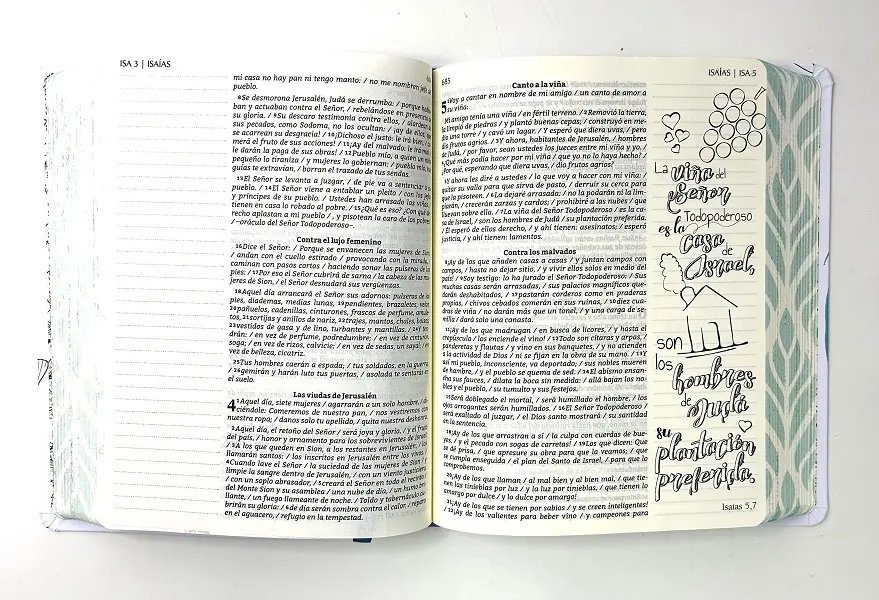 ISA 3 | ISAÍAS
mi casa no hay pan ni tengo manto: / no me nombren jefe del
pueblo.
8Se desmorona Jerusalén, Judá se derrumba: / porque hablaban
ban y actuaban contra el Señor, / rebelándose en presencia de
su gloria. / 9Su descaro testimonia contra ellos, /
sus pecados, como Sodoma, no los ocultan: / ¡ay de ellos, que
se acarrean su desgracia! / 10¡Dichoso el justo: le irá bien,
merá el fruto de sus acciones! / 11¡Ay del malvado: le irá mal,
le darán la paga de sus obras! / 12Pueblo mío, a quien un niño
pequeño lo tiraniza / y mujeres lo gobiernan: / pueblo mío, tus
guías te extravían, / borran el trazado de tus sendas.
13El Señor se levanta a juzgar, / de pie va a sentenciar a su
pueblo. / 14El Señor viene a entablar un pleito / con los jefes
y príncipes de su pueblo. / Ustedes han arrasado las viñas,
tienen en casa lo robado al pobre. / 15¿Qué es eso? ¿Con qué derecho
recho aplastan a mi pueblo / , y pisotean la cara de los pobres?
–oráculo del Señor Todopoderoso–.
Contra el lujo femenino
16Dice el Señor: / Porque se envanecen las mujeres de Sion,
/ andan con el cuello estirado / provocando con la mirada, /
caminan con pasos cortos / haciendo sonar las pulseras de los
pies: / 17Por eso el Señor cubrirá de sarna / la cabeza de las mujeres
res de Sion, / el Señor desnudará sus vergüenzas.
18Aquel día arrancará el Señor sus adornos: pulseras de los
pies, diademas, medias lunas, 19pendientes, brazaletes, velos,
20pañuelos, cadenillas, cinturones, frascos de perfume, amuletos,
tos, 21sortijas y anillos de nariz, 22trajes, mantos, chales, bolsos,
23vestidos de gasa y de lino, turbantes y mantillas. / 24Y tendrán:
drán: / en vez de perfume, podredumbre; / en vez de cinturón,
soga; / en vez de rizos, calvicie; / en vez de sedas, un sayal; / en
vez de belleza, cicatriz.
25Tus hombres caerán a espada; / tus soldados, en la guerra.
/ 26gemirán y harán luto tus puertas, / asolada te sentarás en
el suelo.
Las viudas de Jerusalén
4 1Aquel día, siete mujeres / agarrarán a un solo hombre, /
ciéndole: Comeremos de nuestro pan, / nos vestiremos con
nuestra ropa; / danos solo tu apellido, / quita nuestra deshonra.
2Aquel día, el retoño del Señor / será joya y gloria, / y el fruto
del país, / honor y ornamento para los sobrevivientes de Israel.
/ 3A los que queden en Sion, a los restantes en Jerusalén, / los
llamarán santos: / los inscritos en Jerusalén entre los vivos. /
4Cuando lave el Señor / la suciedad de las mujeres de Sion / y
limpie la sangre dentro de Jerusalén, / con un viento justiciero,
con un soplo abrasador, / 5creará el Señor en todo el recinto /
del Monte Sion y su asamblea / una nube de día, / un humo brillante,
llante, / un fuego llameante de noche. / Toldo y tabernáculo
brirán su gloria: / 6de día serán sombra contra el calor, / reparo
en el aguacero, / refugio en la tempestad.
685
ISAÍAS | ISA 5
Canto a la viña
5 1Voy a cantar en nombre de mi amigo / un canto de amor a
su viña:
Mi amigo tenía una viña / en fértil terreno. / 2Removió la tierra,
la limpió de piedras / y plantó buenas cepas; / construyó en medio
dio una torre / y cavó un lagar. / Y esperó que diera uvas, / pero
dio frutos agrios. / 3Y ahora, habitantes de Jerusalén, / hombres
de Judá, / por favor, sean ustedes los jueces entre mi viña y yo. /
4¿Qué más podía hacer por mi viña / que yo no lo haya hecho? /
¿Por qué, esperando que diera uvas, / dio frutos agrios?
5Y ahora les diré a ustedes / lo que voy a hacer con mi viña: /
quitar su valla para que sirva de pasto, / derruir su cerca para
que la pisoteen. / 6La dejaré arrasada: / no la podarán ni la limpiarán,
rán, / crecerán zarzas y cardos; / prohibiré a las nubes / que
lluevan sobre ella. / 7La viña del Señor Todopoderoso / es la casa
sa de Israel, / son los hombres de Judá / su plantación preferida.
/ Él esperó de ellos derecho, / y ahí tienen: asesinatos; / esperó
justicia, / y ahí tienen: lamentos.
Contra los malvados
8¡Ay de los que añaden casas a casas / y juntan campos con
campos, / hasta no dejar sitio, / y vivir ellos solos en medio del
país! / 9Soy testigo: lo ha jurado el Señor Todopoderoso: / Sus
muchas casas serán arrasadas, / sus palacios magníficos quedarán
darán deshabitados, / 17pastarán corderos como en praderas
propias, / chivos cebados comerán en sus ruinas, / 10diez cuadras
dras de viña / no darán más que un tonel, / y una carga de semilla
milla / dará solo una canasta.
11¡Ay de los que madrugan / en busca de licores, / y hasta el
crepúsculo / los enciende el vino! / 12Todo son cítaras y arpas, /
panderetas y flautas / y vino en sus banquetes, / y no atienden
a la actividad de Dios / ni se fijan en la obra de su mano. / 13Y
así mi pueblo, inconsciente, va deportado; / sus nobles mueren
de hambre, / y el pueblo se quema de sed. / 14El abismo ensancha
cha sus fauces, / dilata la boca sin medida: / allá bajan los nobles
bles / y el pueblo, / su tumulto y sus festejos.
15Será doblegado el mortal, / será humillado el hombre, / los
ojos arrogantes serán humillados. / 16El Señor Todopoderoso /
será exaltado al juzgar, / el Dios santo mostrará / su santidad
en la sentencia.
18¡Ay de los que arrastran a sí / la culpa con cuerdas de bueyes,
yes, / y el pecado con sogas de carretas! / 19Los que dicen: Que
se dé prisa, / que apresure su obra para que la veamos; / que
se cumpla enseguida / el plan del Santo de Israel, / para que lo
comprobemos.
20¡Ay de los que llaman / al mal bien y al bien mal, / que tienen
nen las tinieblas por luz / y la luz por tinieblas, / que tienen lo
amargo por dulce / y lo dulce por amargo!
21¡Ay de los que se tienen por sabios / y se creen inteligentes!
/ 22¡Ay de los valientes para beber vino / y campeones para
La viña del
Señor
Todopoderoso
es la casa
de
Israel,
son
los hombres
de Judá
su
plantación
preferida.
Isaías 5,7